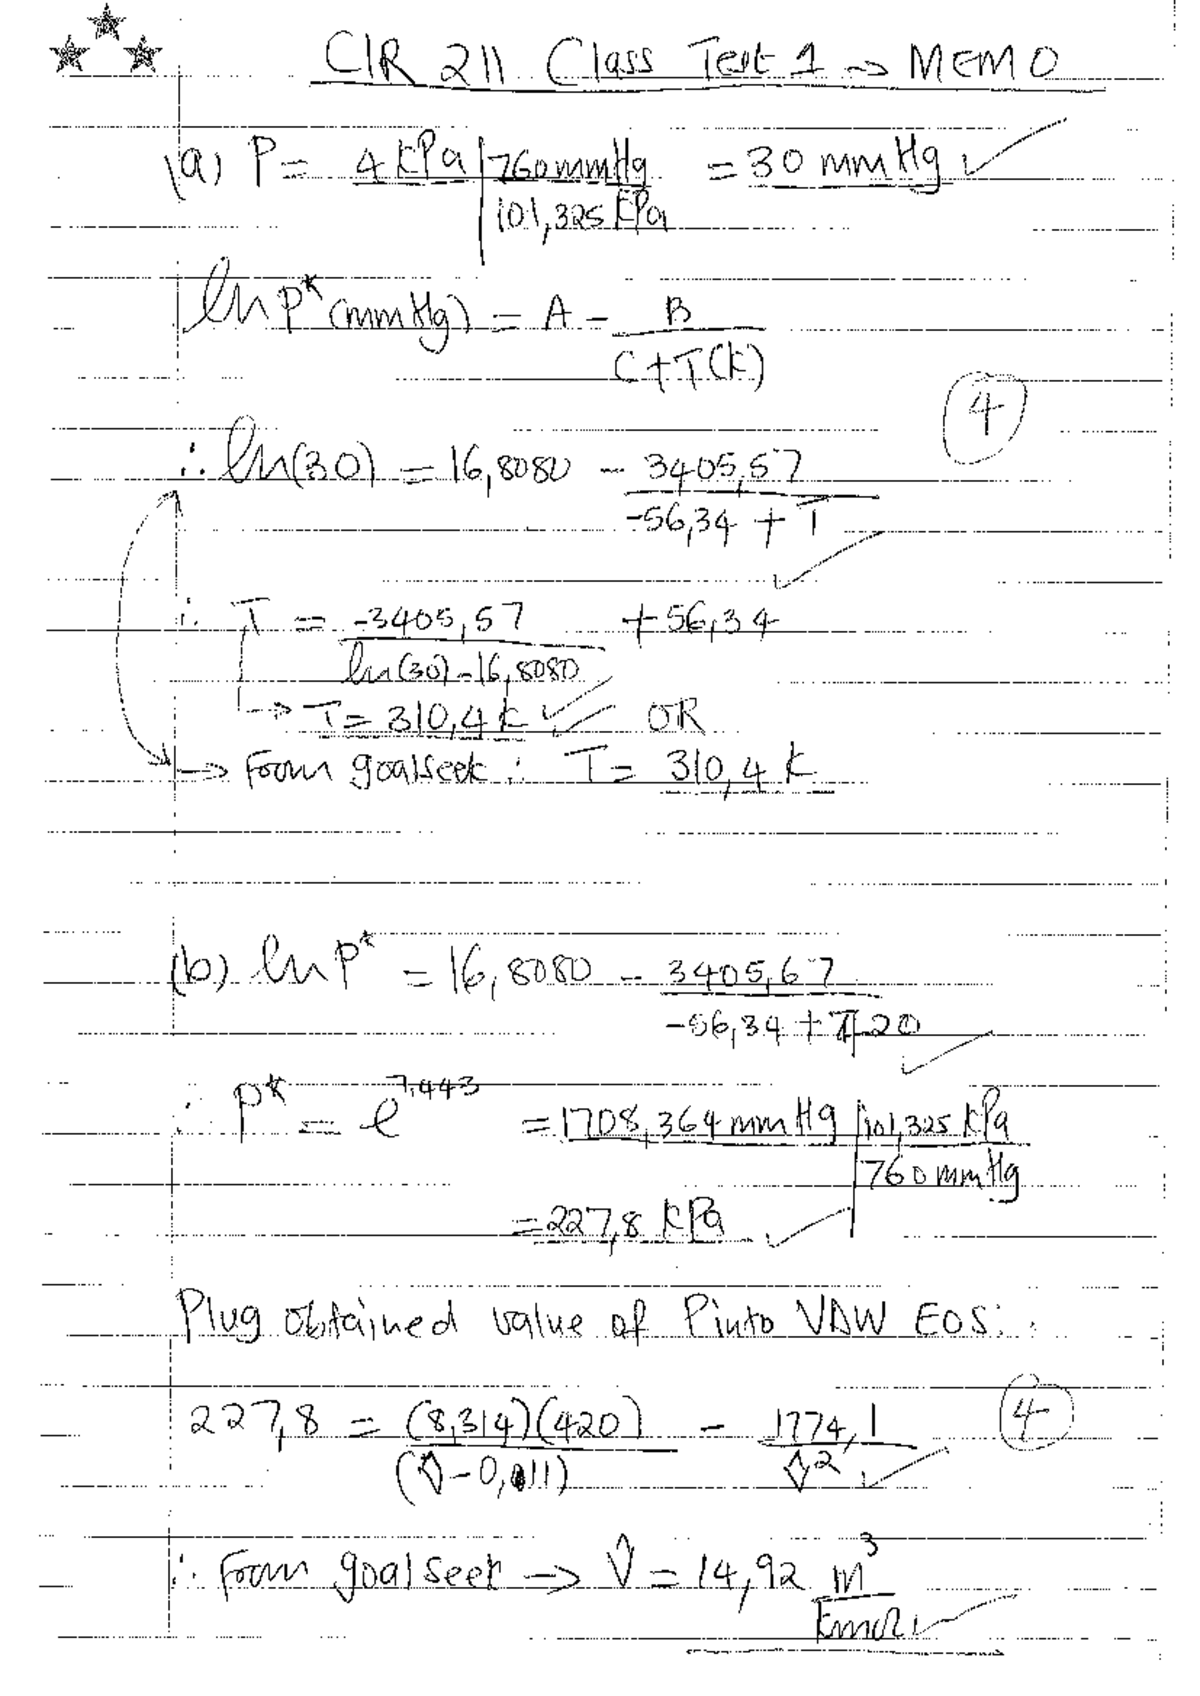 CIR 211 Class Test 1 → MEMO
(a) P = 4 kPa | 760 mmHg = 30 mmHg ✓
101,325 kPa
ln P* (mmHg) = A - B
C + T(K)
4
∴ ln(30) = 16,8080 - 3405,57
-56,34 + T ✓
∴ T = -3405,57 + 56,34
ln(30) - 16,8080
→ T = 310,4 K ✓✓ OR
→ From goalseek : T = 310,4 K
(b) ln P* = 16,8080 - 3405,67
-56,34 + 420 ✓
∴ P* = e^7.443 = 1708,364 mmHg | 101,325 kPa
760 mmHg
= 227,8 kPa ✓
Plug obtained value of P into VDW EOS:
4
227,8 = (8,314)(420) - 1774,1
(V̂ - 0,11) V̂² ✓
∴ From goal seek → V̂ = 14,92 m³
kmol ✓